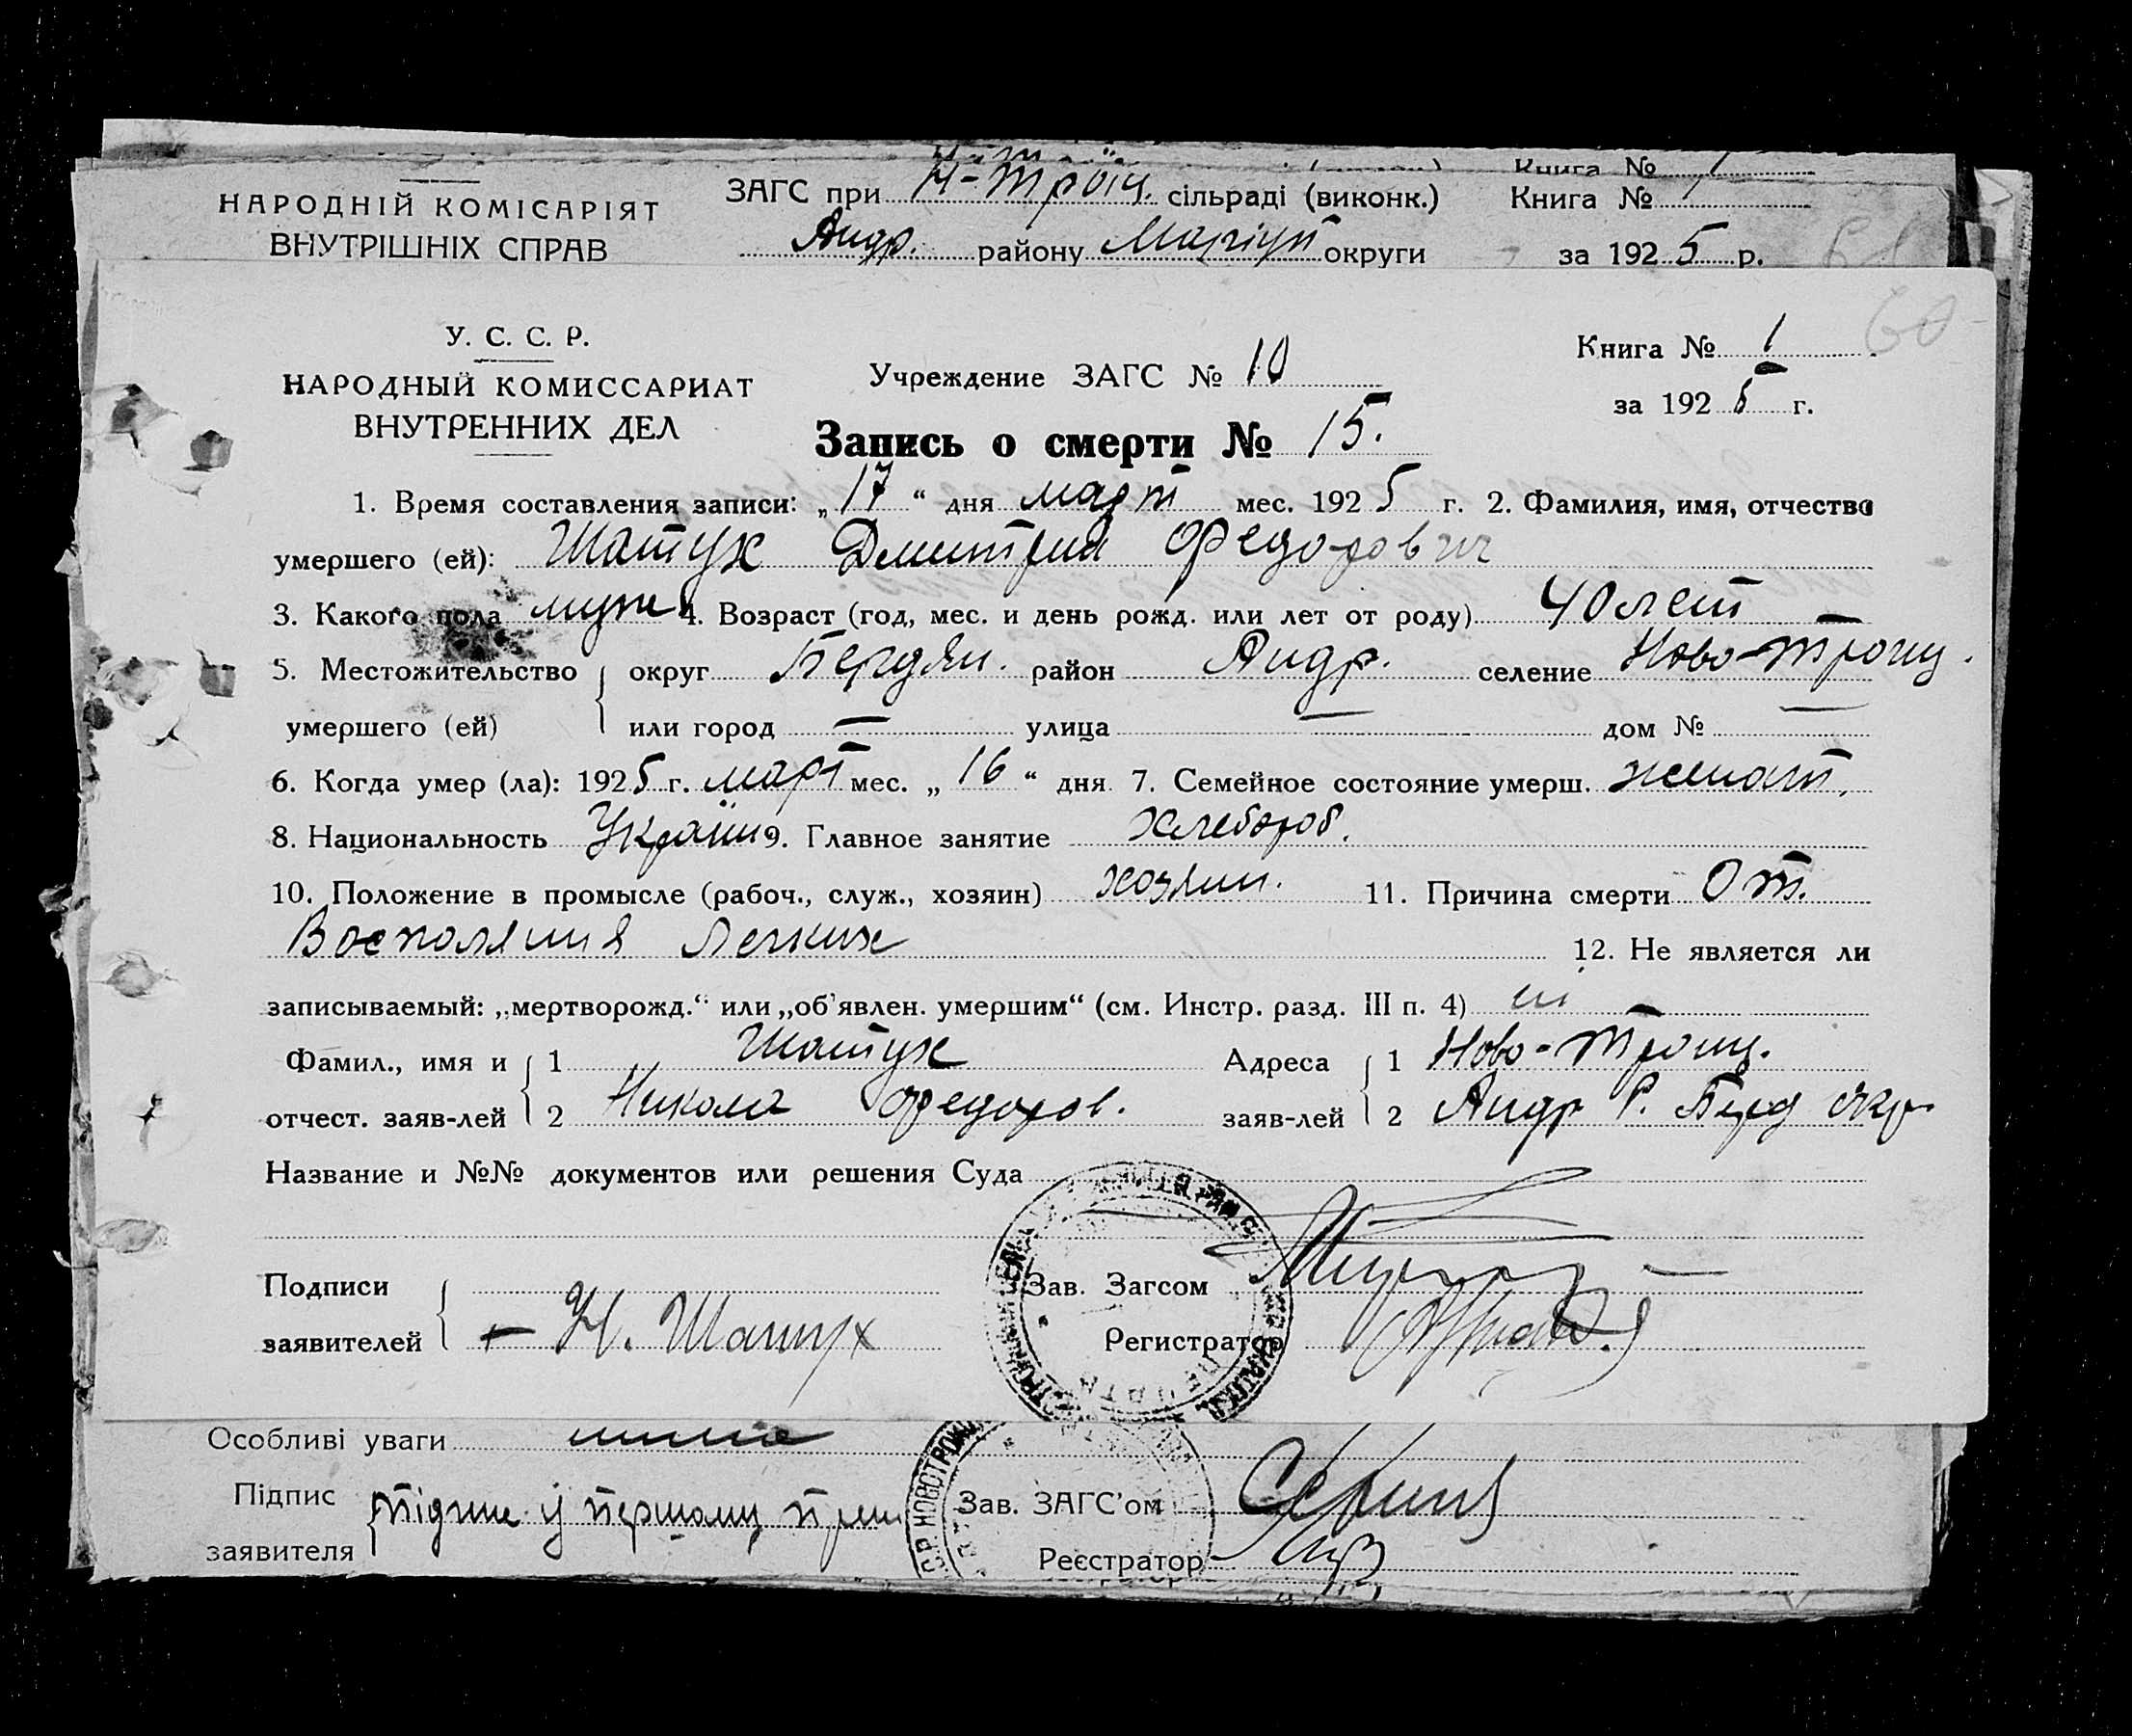 Книга № 1
НАРОДНІЙ КОМІСАРІЯТ
ВНУТРІШНІХ СПРАВ
ЗАГС при Н-Троїц. сільраді (виконк.)
Андр. району Маріуп округи
Книга № 1
за 1925 р.
У. С. С. Р.
НАРОДНЫЙ КОМИССАРИАТ
ВНУТРЕННИХ ДЕЛ
Учреждение ЗАГС № 10
Книга № 1
за 1925 г.
60
Запись о смерти № 15.
1. Время составления записи: „17“ дня март мес. 1925 г. 2. Фамилия, имя, отчество
умершего (ей): Шатух Дмитрий Федорович
3. Какого пола муж 4. Возраст (год, мес. и день рожд. или лет от роду) 40 лет
5. Местожительство { округ Бердян. район Андр. селение Ново-Троиц.
умершего (ей) { или город — улица — дом № —
6. Когда умер (ла): 1925 г. март мес. „16“ дня 7. Семейное состояние умерш. женат.
8. Национальность Україн 9. Главное занятие хлебороб.
10. Положение в промысле (рабоч., служ., хозяин) хозяин. 11. Причина смерти От.
Воспаления Легких 12. Не является ли
записываемый: „мертворожд.“ или „об'явлен. умершим“ (см. Инстр. разд. III п. 4)
Фамил., имя и { 1 Шатух Адреса { 1 Ново-Троиц.
отчест. заяв-лей { 2 Никола Федоров. заяв-лей { 2 Андр Р. Берд окр
Название и №№ документов или решения Суда
Подписи { Зав. Загсом
заявителей { + Н. Шатух Регистратор
Особливі уваги
Підпис { Підпис у першому прим Зав. ЗАГС'ом
заявителя { Реєстратор